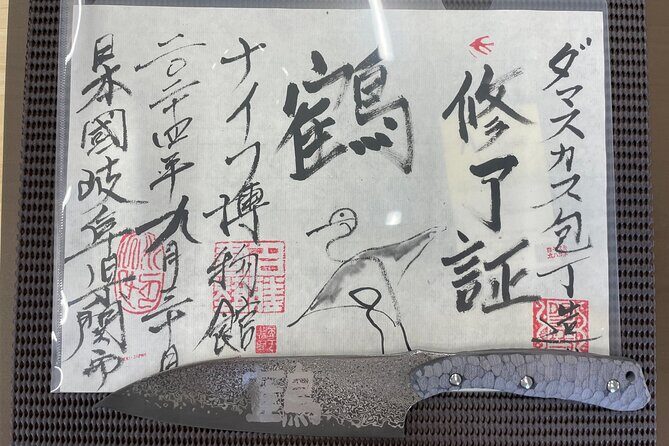 ダマスカス包丁造
修了証
鶴
ナイフ博物館
二〇二十四年九月二十日
日本國岐阜県關市
鶴